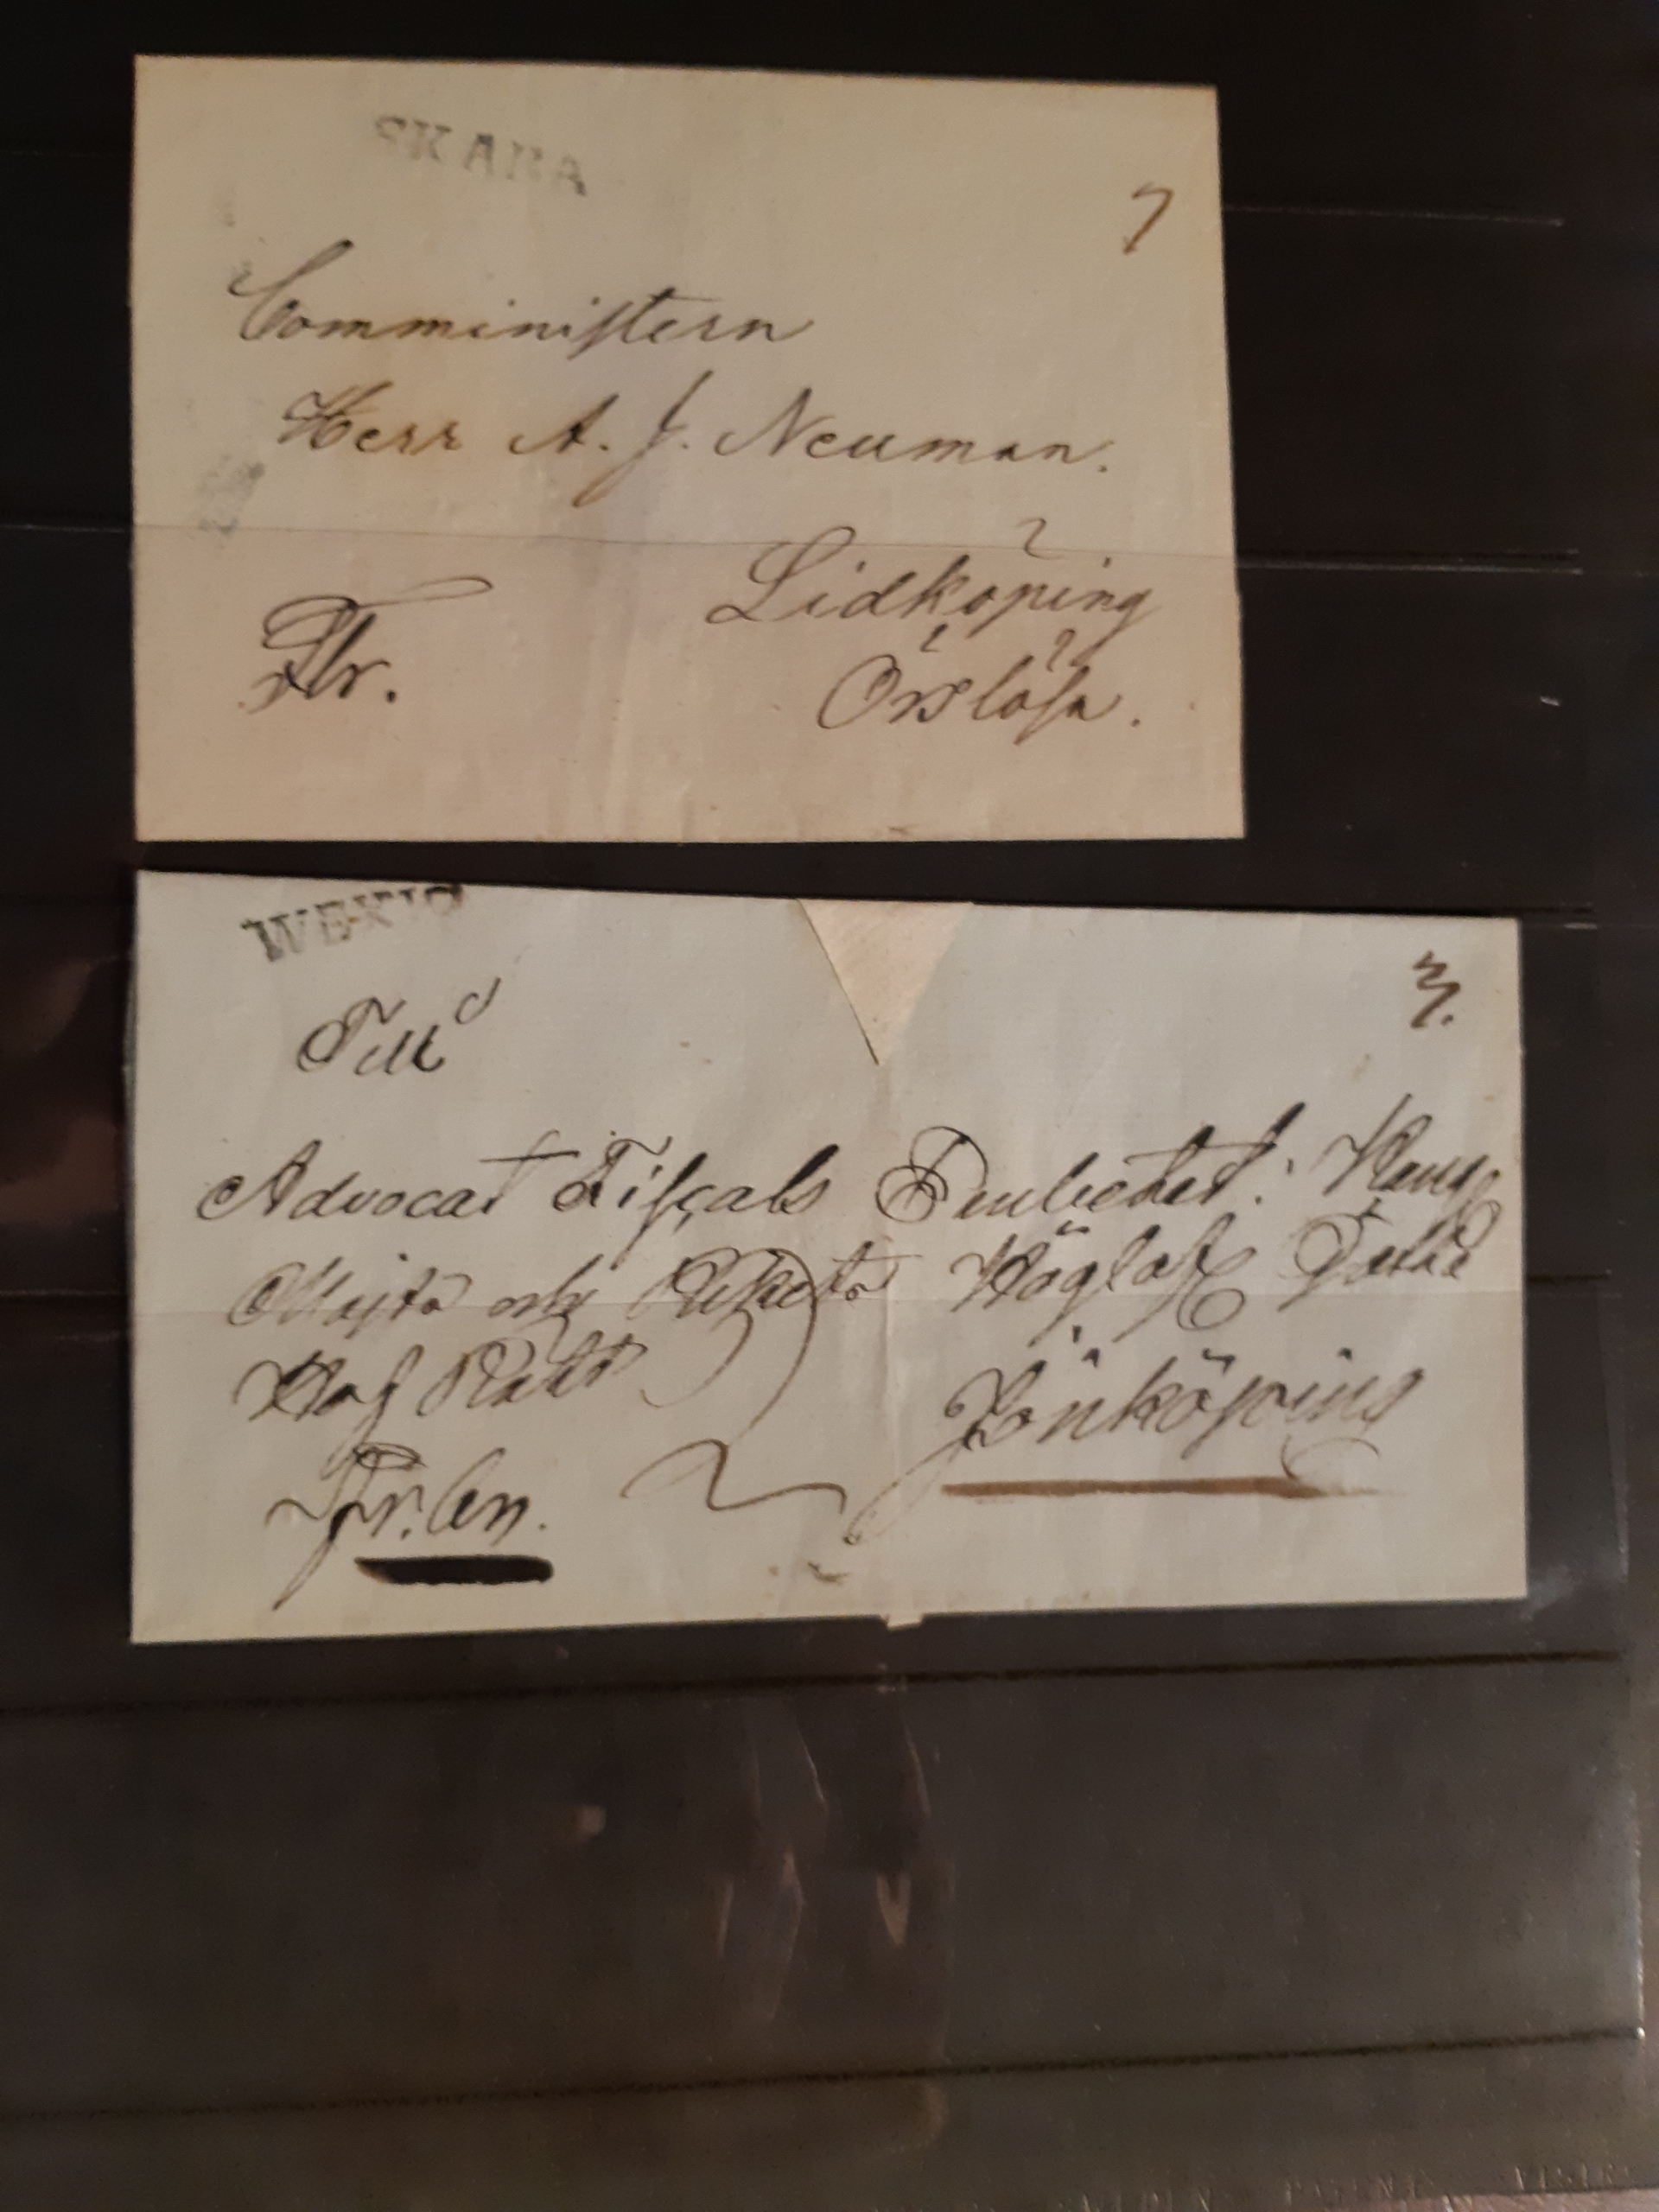 SKARA
7
Comministern
Herr A. J. Neuman.
Lidköping
Fr.
Örslösa.
WEXIO
Till
3.
Advocat Fiscals Embetet i Kongl
Maj:ts och Rikets Höglofl Götha
Hof Rätt
Jönköping